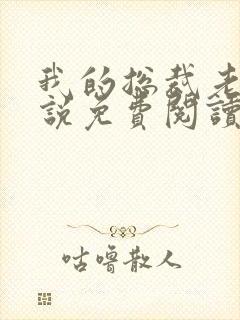 我的总裁老
說免費閱讀
咕噜散人